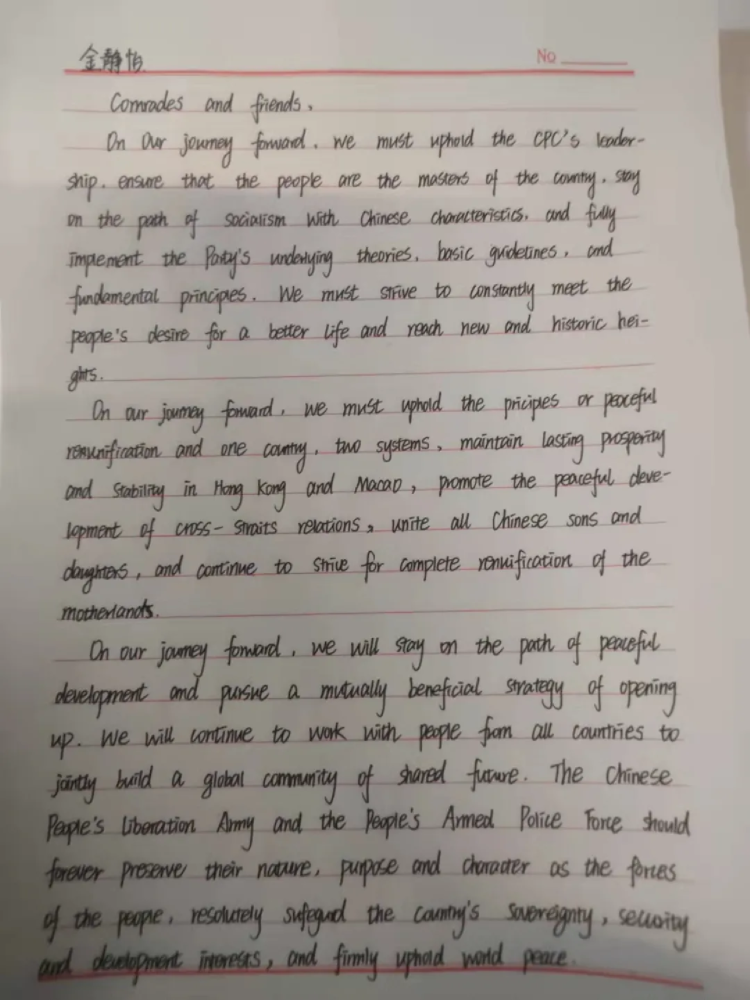 金静怡
No
Comrades and friends,
On Our journey forward, we must uphold the CPC's leader-
ship, ensure that the people are the masters of the country, stay
on the path of socialism with Chinese characteristics, and fully
implement the Party's underlying theories, basic guidelines, and
fundamental principles. We must strive to constantly meet the
people's desire for a better life and reach new and historic hei-
ghts.
On our journey forward, we must uphold the priciples or peaceful
renunification and one country, two systems, maintain lasting prosperity
and stability in Hong Kong and Macao, promote the peaceful deve-
lopment of cross-straits relations, unite all Chinese sons and
daughters, and continue to strive for complete renuification of the
motherlands.
On our journey forward, we will stay on the path of peaceful
development and pursue a mutually beneficial strategy of opening
up. We will continue to work with people from all countries to
jointly build a global community of shared future. The Chinese
People's Liberation Army and the People's Armed Police Force should
forever preserve their nature, purpose and character as the forces
of the people, resolutely safegurd the country's sovereignty, security
and development interests, and firmly uphold world peace.